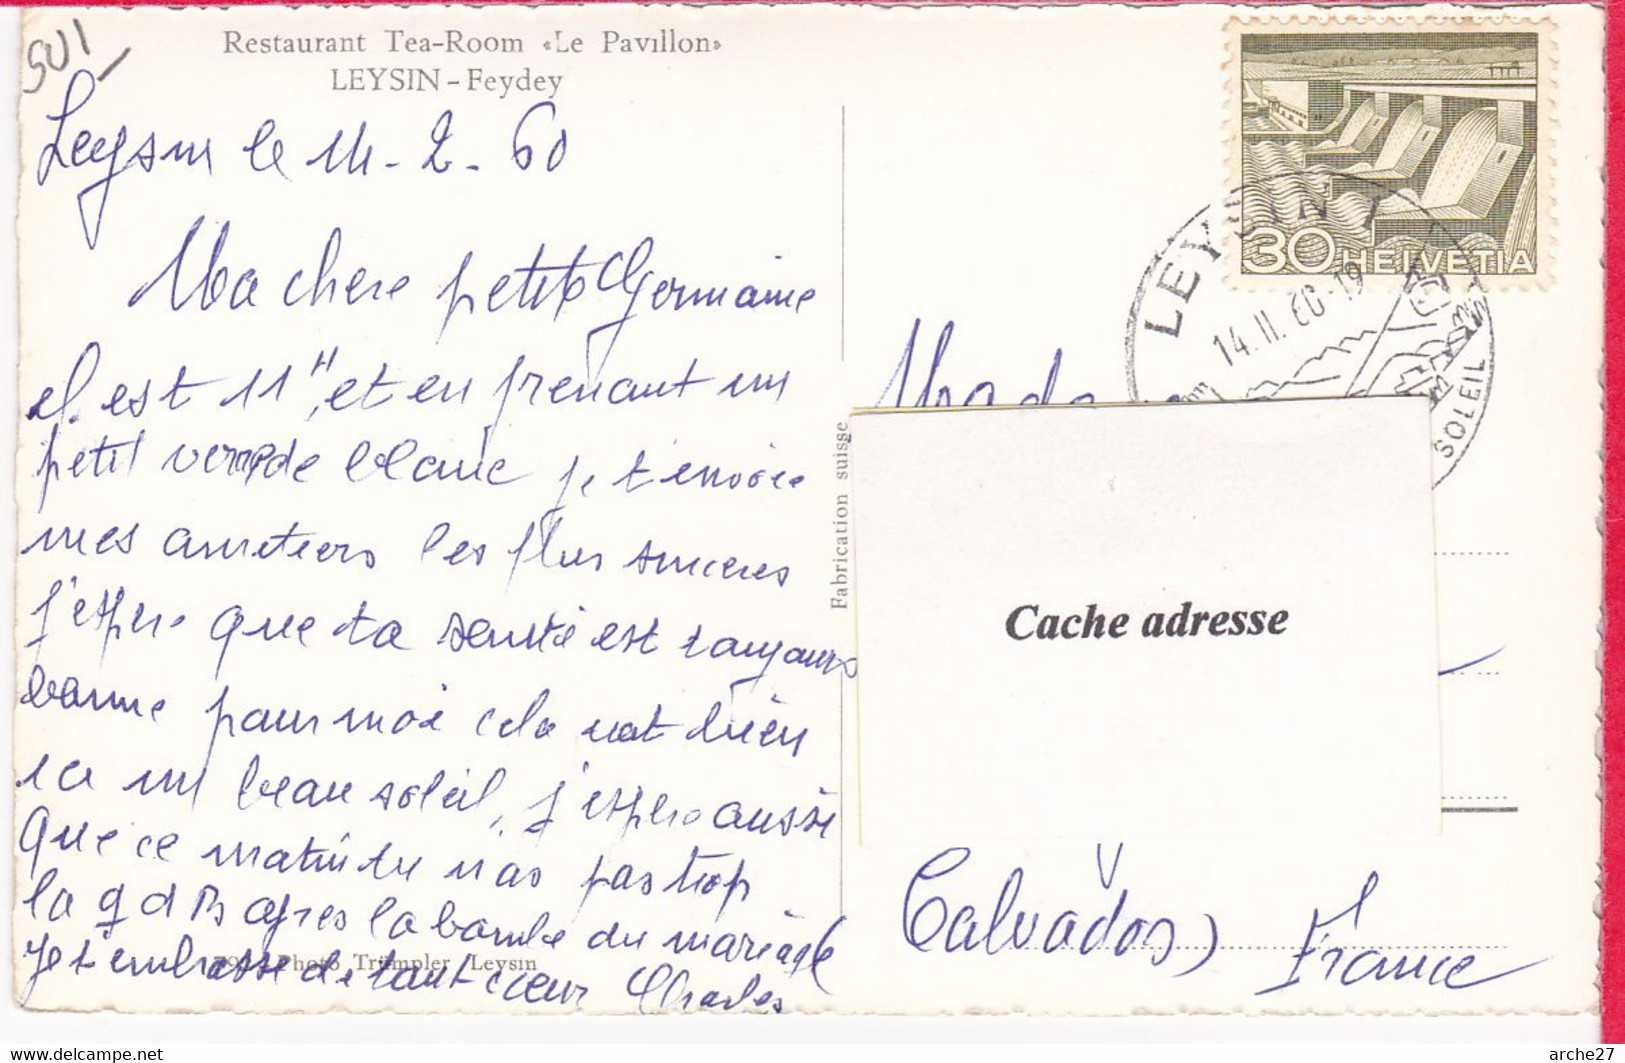 SUI
Restaurant Tea-Room «Le Pavillon»
LEYSIN - Feydey
Leysin le 14-2-60
Ma chere petite Germaine
il est 11H, et en prenant un
petit verre de blanc je t'envoie
mes amitiers les plus sinceres
j'espere que ta santé est toujours
bonne pour moi cela vat bien
ici un beau soleil, j'espere aussi
que ce matin tu n'as pas trop
la g d B apres la bombe du mariage
Je t'embrasse de tout cœur Charles
Photo Trümpler, Leysin
Fabrication suisse
30 HELVETIA
LEYSIN 1
14.II.60-19
SOLEIL
Madame
Cache adresse
Calvados)
France
www.delcampe.net
arche27